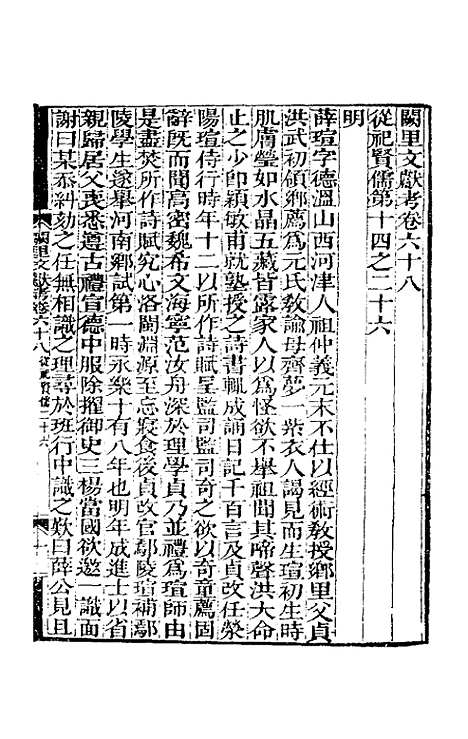 闕里文獻考卷六十八
從祀賢儒第十四之二十六
明
薛瑄字德溫山西河津人祖仲義元末不仕以經術敎授鄉里父貞
洪武初領鄉薦爲元氏敎諭母齊夢一紫衣人謁見而生瑄初生時
肌膚瑩如水晶五藏皆露家人以爲怪欲不舉祖聞其啼聲洪大命
止之少卽穎敏甫就塾授之詩書輒成誦日記千百言及貞改任滎
陽瑄侍行時年十二以所作詩賦呈監司監司奇之欲以奇童薦固
辭旣而聞高密魏希文海寧范汝舟深於理學貞乃並禮爲瑄師由
是盡焚所作詩賦究心洛閩淵源至忘寢食後貞改官鄢陵瑄補鄢
陵學生遂舉河南鄉試第一時永樂十有八年也明年成進士以省
親歸居父喪悉遵古禮宣德中服除擢御史三楊當國欲邀一識面
謝曰某忝糾劾之任無相識之理尋於班行中識之歎曰薛公見且
闕里文獻考卷六十八